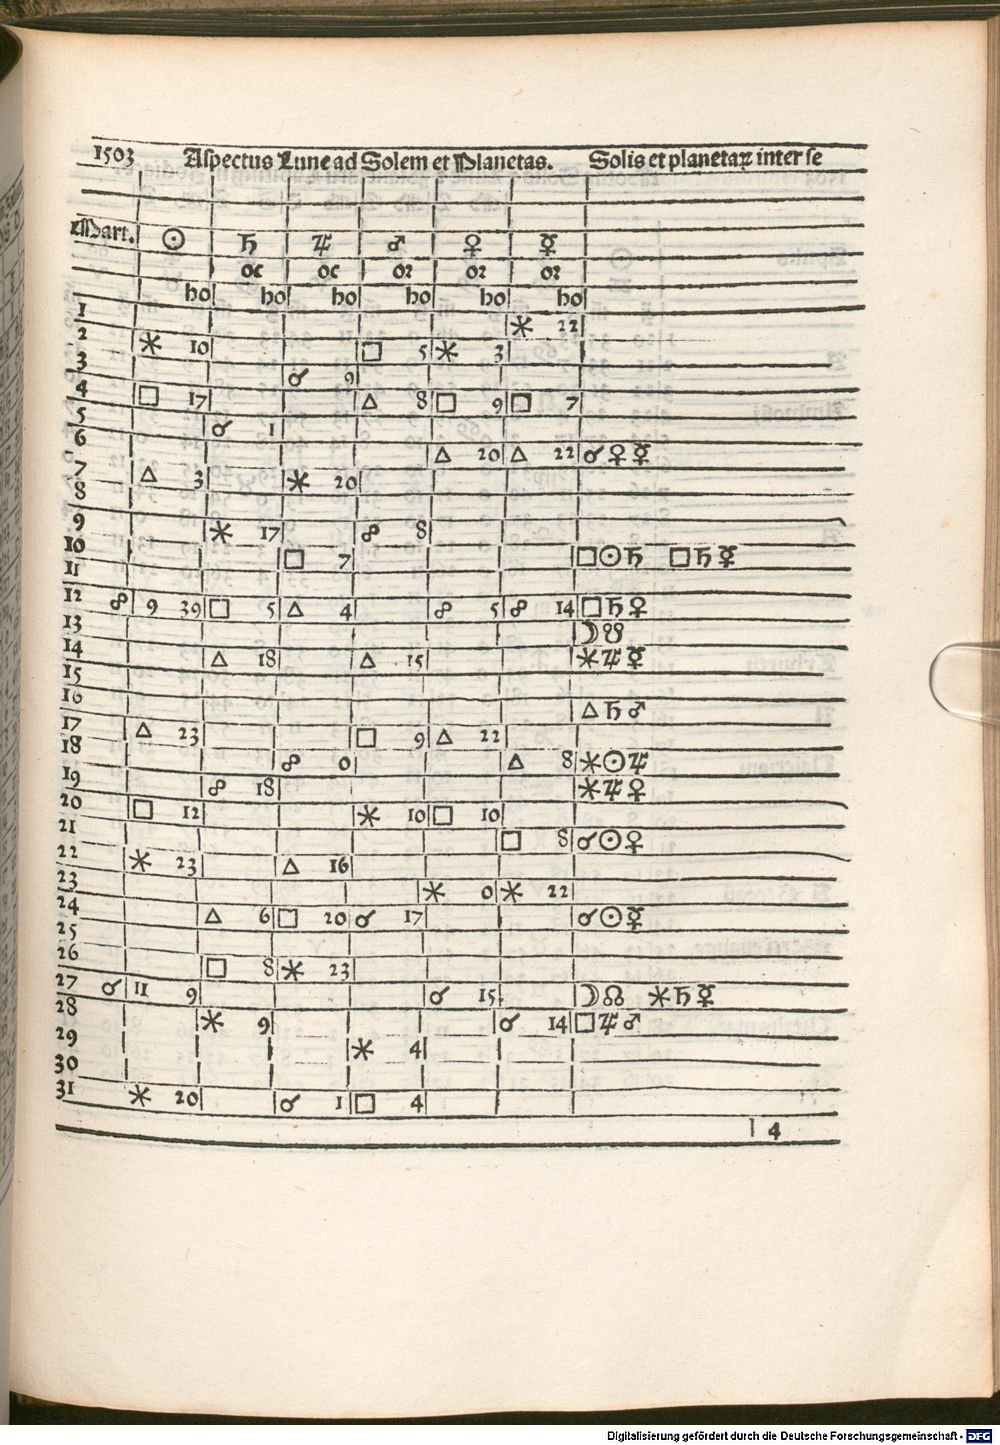 1503 Aspectus Lune ad Solem et Planetas. Solis et planetaꝝ inter se
Mart. ☉ ♄ ♃ ♂ ♀ ☿
oc oc or or or
ho ho ho ho ho ho
1 ⚹ 22
2 ⚹ 10 □ 5 ⚹ 3
3 ☌ 9
4 □ 17 △ 8 □ 9 □ 7
5 ☌ 1
6 △ 20 △ 22 ☌♀☿
7 △ 3 ⚹ 20
8
9 ⚹ 17 ☍ 8
10 □ 7 □☉♄ □♄☿
11
12 ☍ 9 39 □ 5 △ 4 ☍ 5 ☍ 14 □♄♀
13 ☽☋
14 △ 18 △ 15 ⚹♃☿
15
16 △♄♂
17 △ 23 □ 9 △ 22
18 ☍ 0 △ 8 ⚹☉♃
19 ☍ 18 ⚹♃♀
20 □ 12 ⚹ 10 □ 10
21 □ 8 ☌☉♀
22 ⚹ 23 △ 16
23 ⚹ 0 ⚹ 22
24 △ 6 □ 20 ☌ 17 ☌☉☿
25
26 □ 8 ⚹ 23
27 ☌ 11 9 ☌ 15 ☽☊ ⚹♄☿
28 ⚹ 9 ☌ 14 □♃♂
29 ⚹ 4
30
31 ⚹ 20 ☌ 1 □ 4
l 4
Digitalisierung gefördert durch die Deutsche Forschungsgemeinschaft - DFG